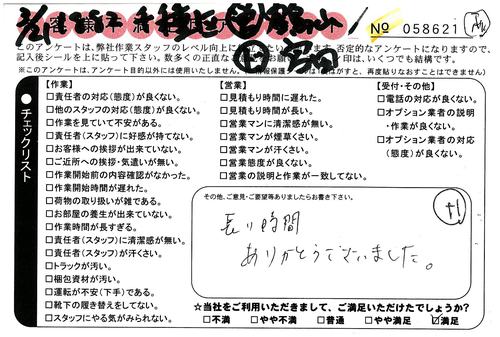 No 058621
このアンケートは、弊社作業スタッフのレベル向上に
否定的なアンケートになりますので、
記入後シールを上に貼って下さい。数多くの正直な
印は、いくつでも結構です。
※このアンケートは、アンケート目的以外には使用いたしません。
はがすと、再度貼りなおすことはできません)
チェックリスト
【作業】
□責任者の対応(態度)が良くない。
□他のスタッフの対応(態度)が良くない。
□作業を見ていて不安がある。
□責任者(スタッフ)に好感が持てない。
□お客様への挨拶が出来ていない。
□ご近所への挨拶・気遣いが無い。
□作業開始前の内容確認がなかった。
□作業開始時間が遅れた。
□荷物の取り扱いが雑である。
□お部屋の養生が出来ていない。
□作業時間が長すぎる。
□責任者(スタッフ)に清潔感が無い。
□責任者(スタッフ)が汗くさい。
□トラックが汚い。
□梱包資材が汚い。
□運転が不安(下手)である。
□靴下の履き替えをしてない。
□スタッフにやる気がみられない。
【営業】
□見積もり時間に遅れた。
□見積もり時間が長い。
□営業マンに清潔感が無い。
□営業マンが煙草くさい。
□営業マンが汗くさい。
□営業態度が良くない。
□営業の説明と作業が一致してない。
【受付・その他】
□電話の対応が良くない。
□オプション業者の説明
・作業が良くない。
□オプション業者の対応
(態度)が良くない。
その他、ご意見・ご要望等ありましたらお書き下さい。
長い時間
ありがとうございました。
☆当社をご利用いただきまして、ご満足いただけたでしょうか?
□不満 □やや不満 □普通 □やや満足 ☑満足